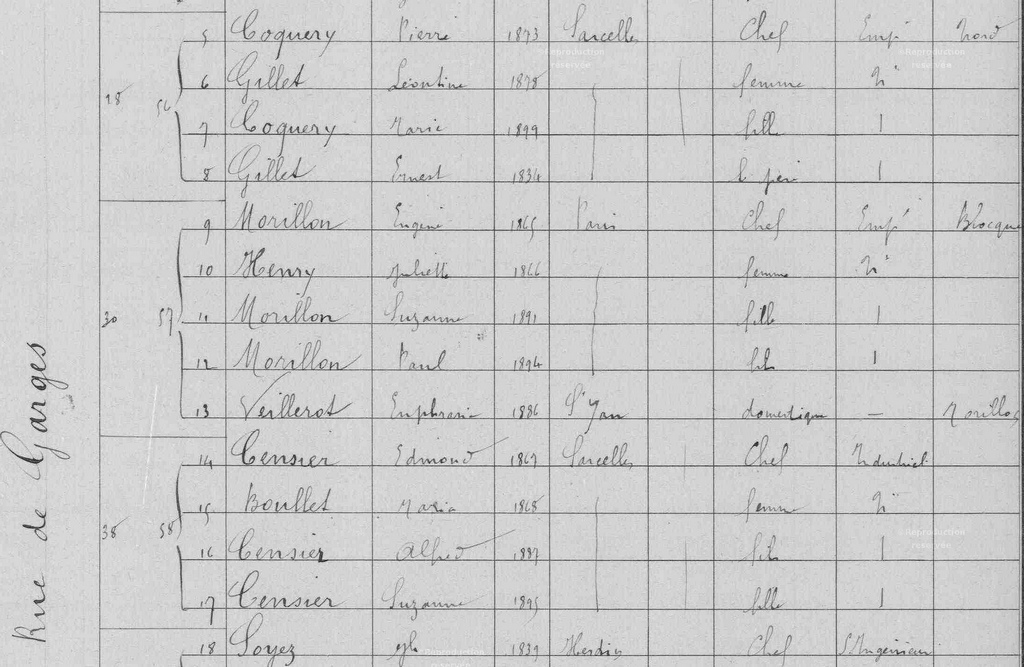 5 Coquery Pierre 1873 Sarcelles Chef Emp. Nord
18 56 6 Gillet Léontine 1878 femme
7 Coquery Marie 1899 fille
8 Gillet Ernest 1834 b. père
9 Morillon Eugène 1865 Paris Chef Emp.
10 Henry Juliette 1866 femme
30 57 11 Morillon Suzanne 1891 fille
12 Morillon Paul 1894 fils
13 Veillerot Euphrasie 1886 St Yan domestique — Morillon
14 Censier Edmond 1867 Sarcelles Chef Industriel
15 Boullet Maria 1868 femme
38 58 16 Censier Alfred 1887 fils
17 Censier Suzanne 1895 fille
18 Soyez 1839 Hesdin Chef
Rue de Garges
©Reproduction réservée
©Reproduction réservée
©Reproduction réservée
©Reproduction réservée
©Reproduction